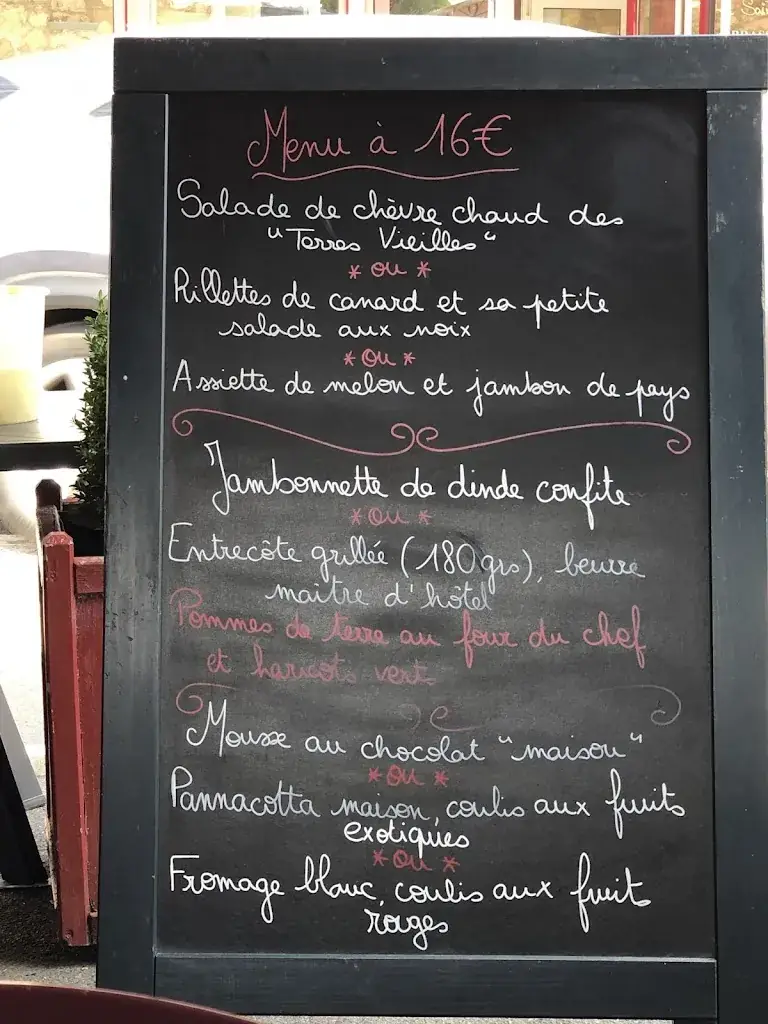 Menu à 16€
Salade de chèvre chaud des
"Terres Vieilles"
* ou *
Rillettes de canard et sa petite
salade aux noix
* ou *
Assiette de melon et jambon de pays
Jambonnette de dinde confite
* ou *
Entrecôte grillée (180grs), beurre
maitre d'hôtel
Pommes de terre au four du chef
et haricots verts
Mousse au chocolat "maison"
* ou *
Pannacotta maison, coulis aux fruits
exotiques
* ou *
Fromage blanc, coulis aux fruits
rouges